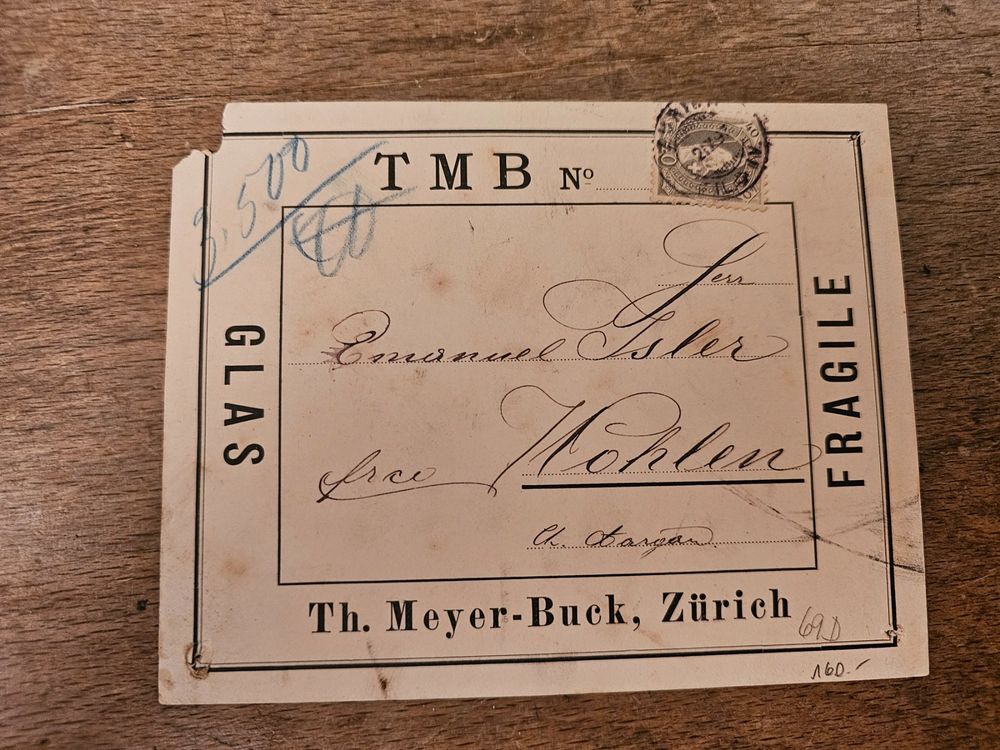 3.500
TMB Nº
40
Herr
GLAS
Emanuel Isler
FRAGILE
frco Wohlen
Ct. Aargau
Th. Meyer-Buck, Zürich
69D
160.-